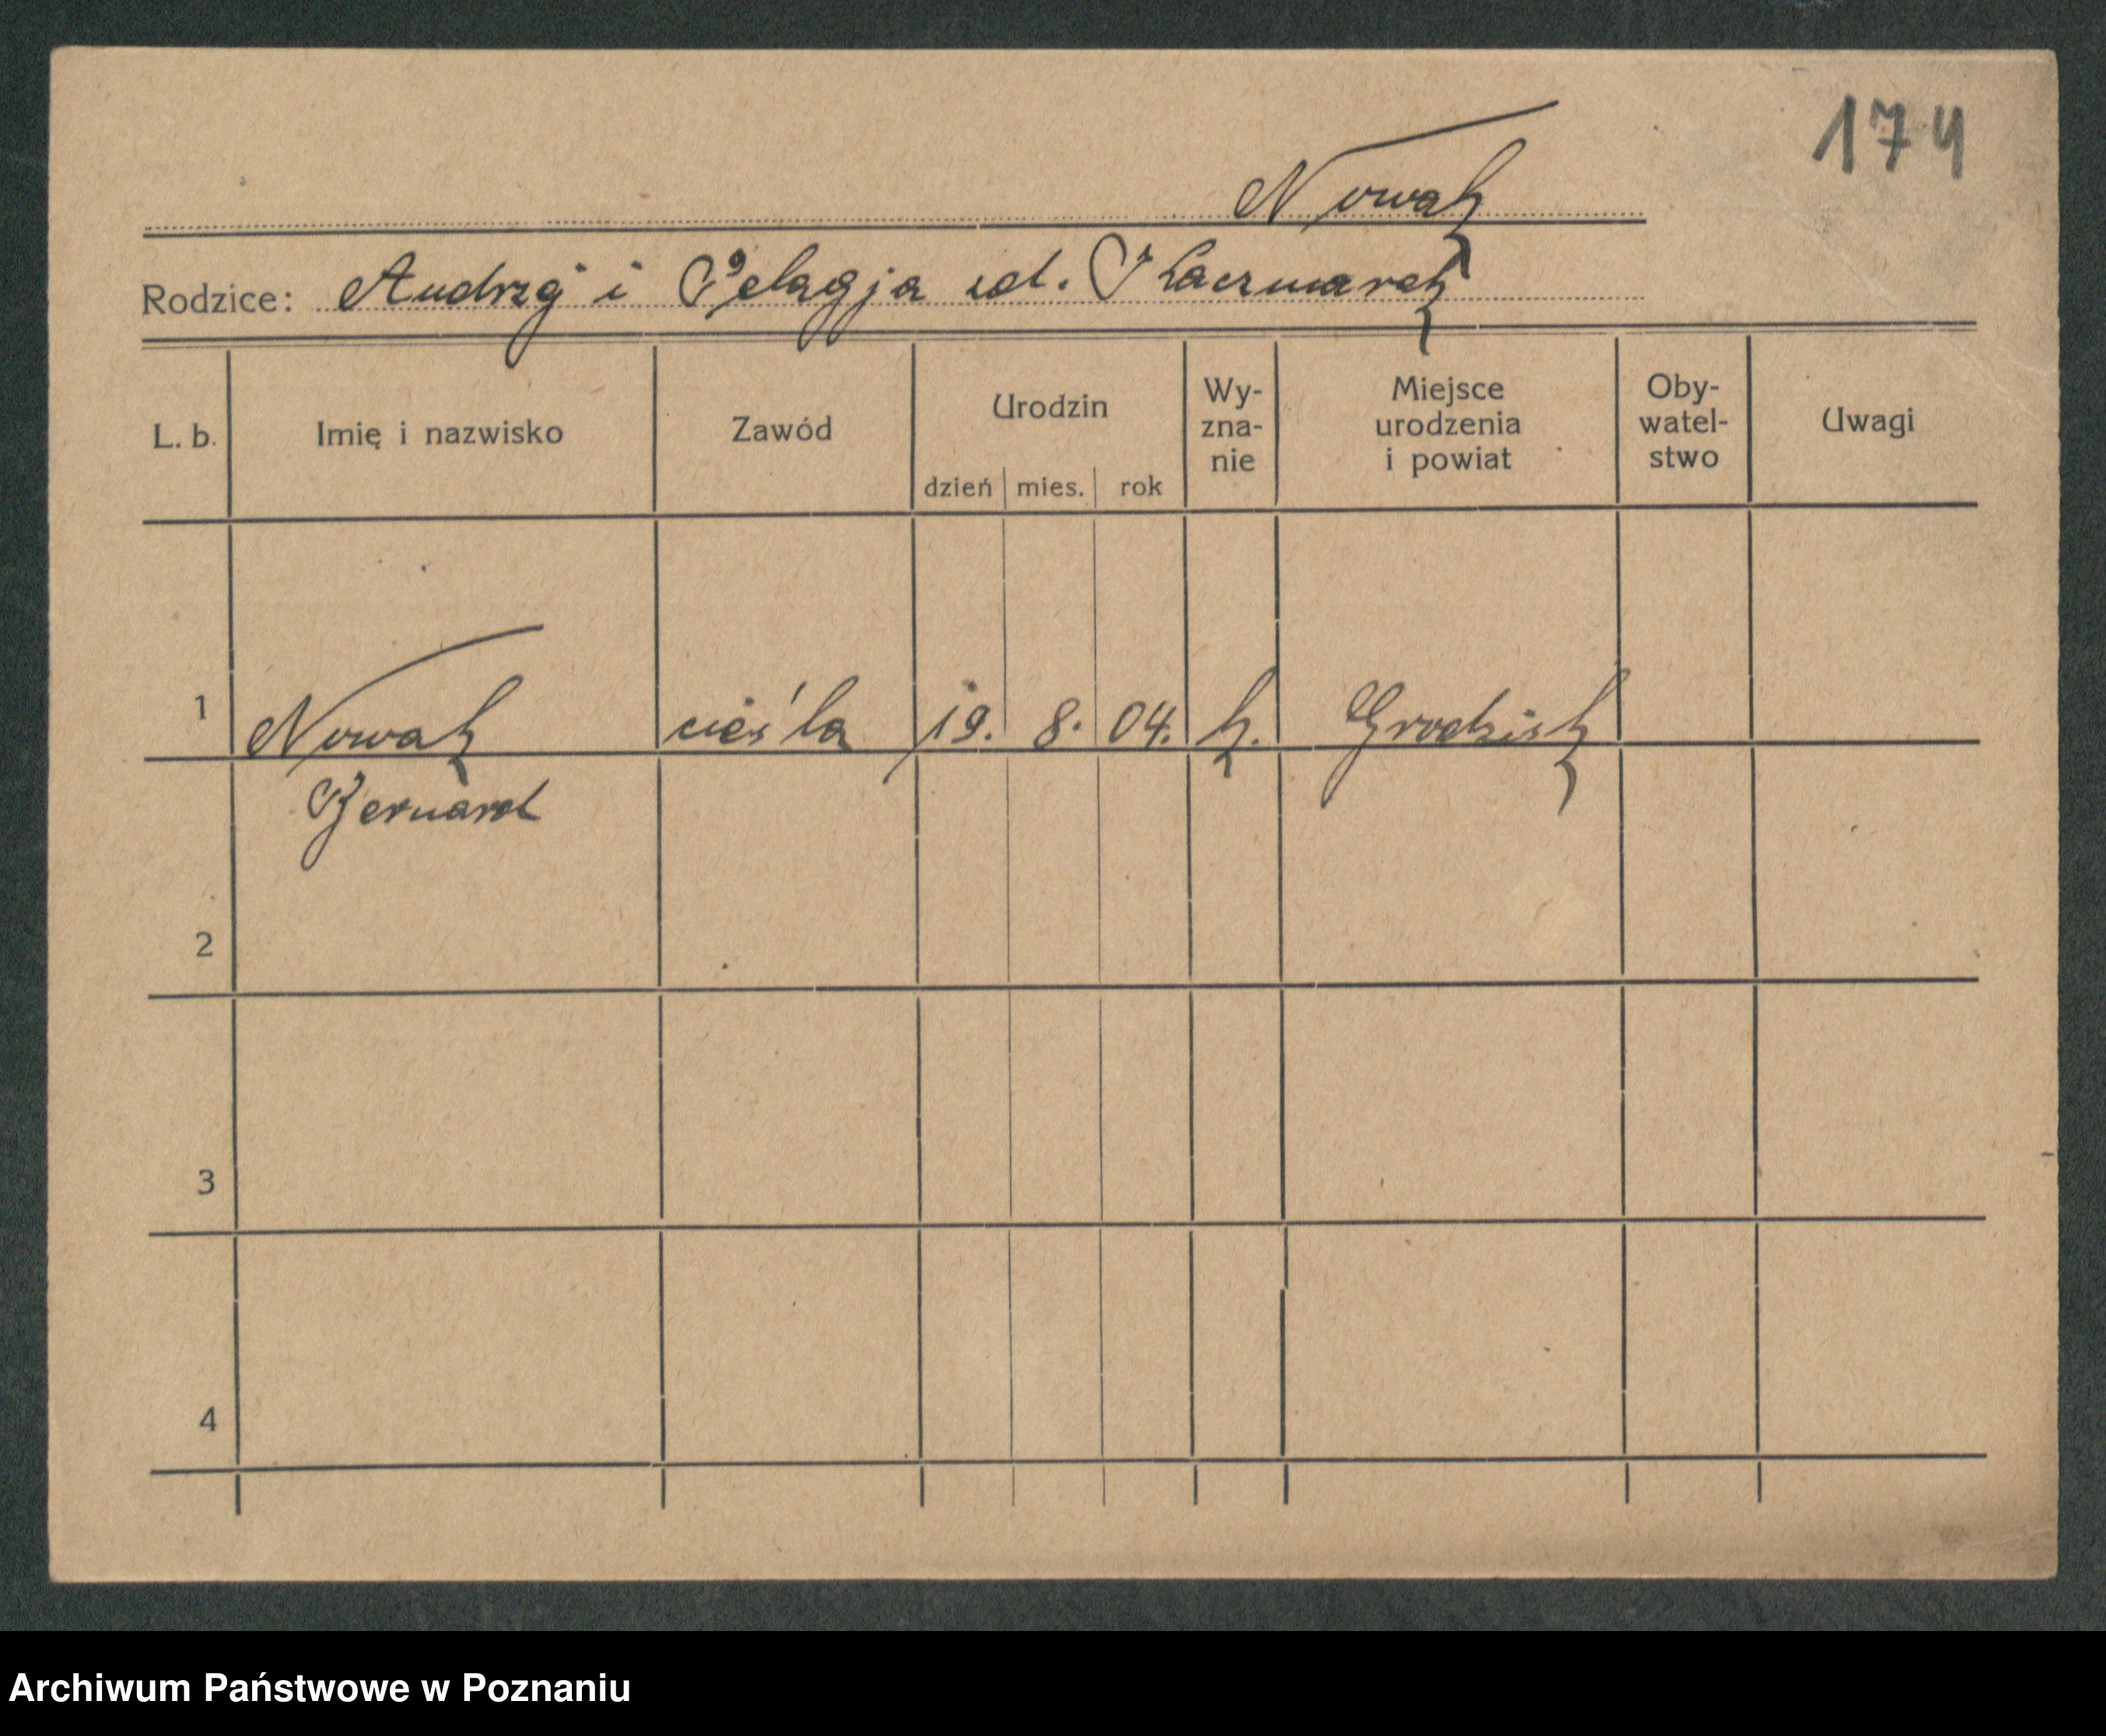 174
Nowak
Rodzice: Andrzej i Pelagja zd. Kaczmarek
L. b. Imię i nazwisko Zawód Urodzin dzień mies. rok Wy-zna-nie Miejsce urodzenia i powiat Oby-watel-stwo Uwagi
1 Nowak cieśla 19. 8. 04. k. Grodzisk
Bernard
2
3
4
Archiwum Państwowe w Poznaniu